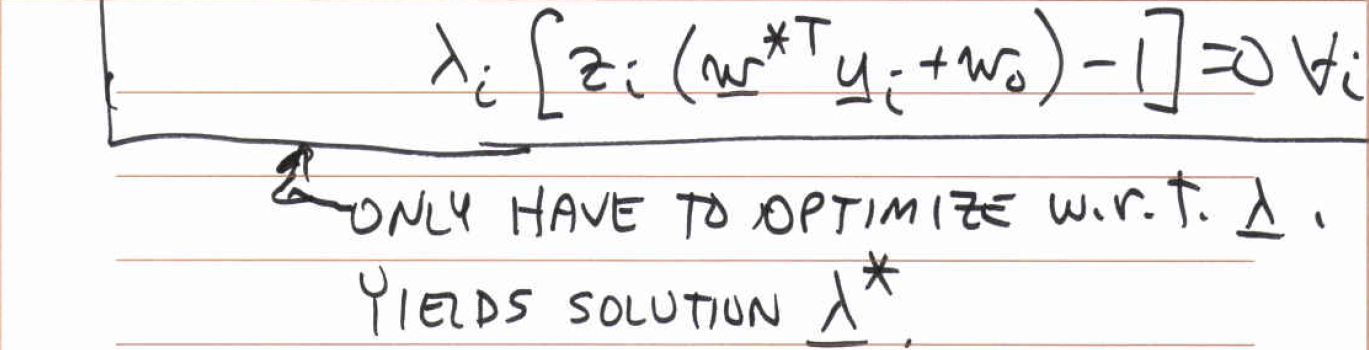 λᵢ [zᵢ (w̲*ᵀ y̲ᵢ + w₀) − 1] = 0 ∀i
ONLY HAVE TO OPTIMIZE w.r.t. λ̲.
YIELDS SOLUTION λ̲*.